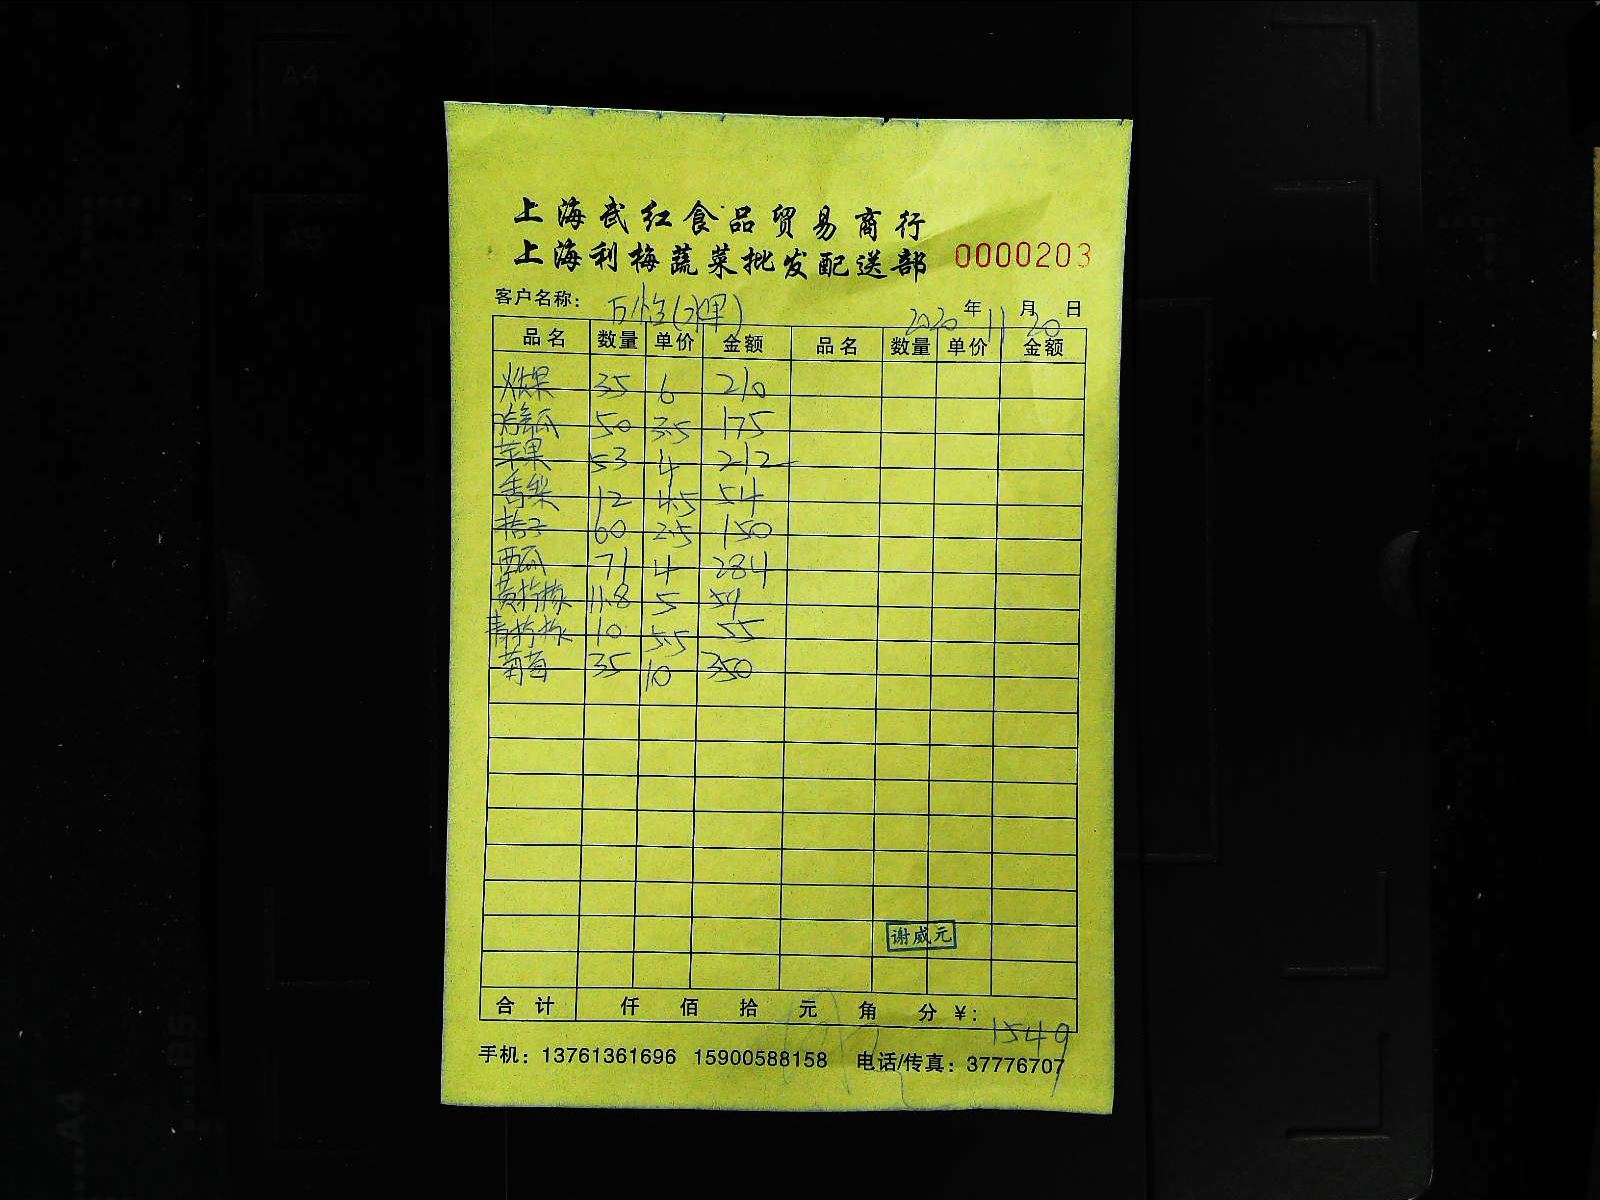 上海武红食品贸易商行
上海利梅蔬菜批发配送部 0000203
客户名称： (水果) 2020年11月20日
品名 数量 单价 金额 品名 数量 单价 金额
火龙果 35 6 210
哈密瓜 50 3.5 175
苹果 53 4 212
香梨 12 4.5 54
桔子 60 2.5 150
西瓜 71 4 284
黄柠檬 11.8 5 59
青柠檬 10 5.5 55
葡萄 35 10 350
谢威元
合计 仟 佰 拾 元 角 分 ¥: 1549
手机：13761361696 15900588158 电话/传真：37776707
A4
A5
B5
A4